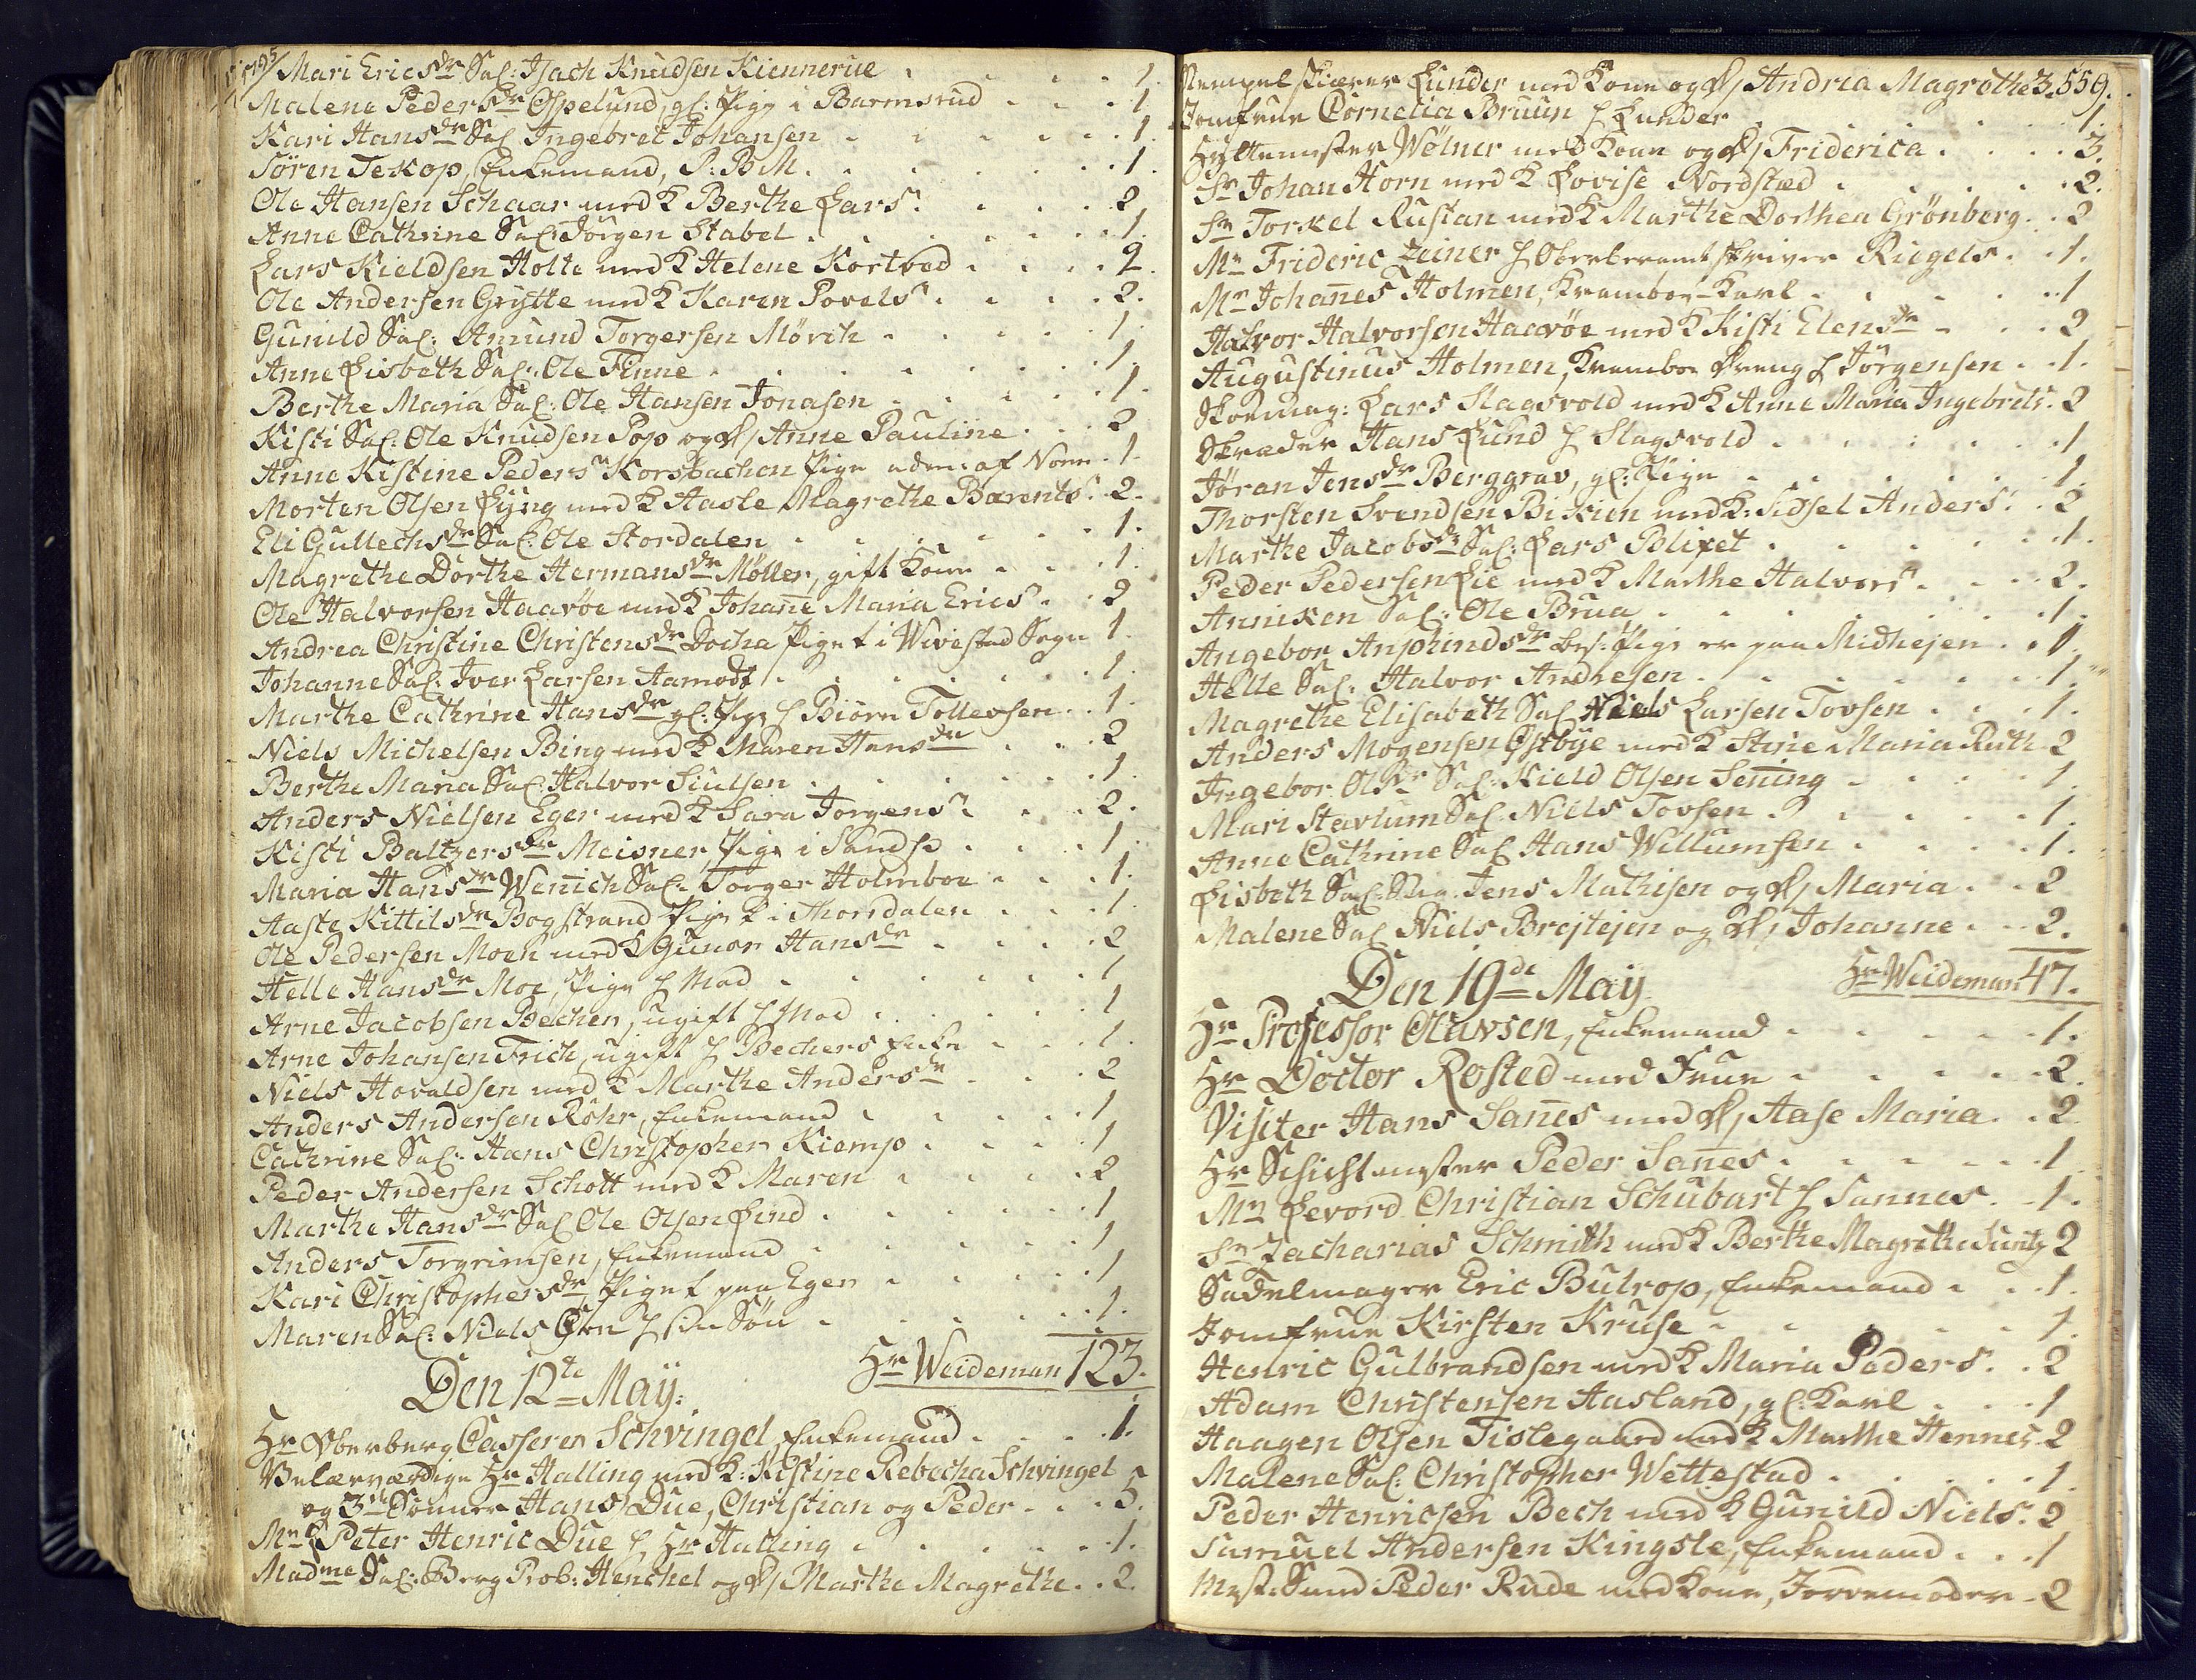 1795
Mari Erics dr Sal: Isach Knudsen Kiennerue . . . 1.
Malene Peders dr Ospelund, gl: Pige i Barmsrud . . . 1
Kari Hans dr Sal Ingebret Johansen . . . 1.
Sören Tekop, Enkemand, P: B: M. . . . 1.
Ole Hansen Schaar med K Berthe Lars . . . 2
Anne Cathrine Sal: Jörgen Stabel . . . 1.
Lars Kieldsen Holte med K Helene Kortved . . . 2.
Ole Andersen Grytte med K Karen Povels . . . 2.
Gunild Sal: Amund Torgersen Mörch . . . 1.
Anne Lisbeth Sal: Ole Finne . . . 1.
Berthe Maria Sal: Ole Hansen Jonasen . . . 1.
Kisti Sal: Ole Knudsen Pop og D/ Anne Pauline . . . 2
Anne Kistine Peders Korsbachen Pige . 1.
Morten Olsen Lÿng med K Aasle Magrethe Barents . 2.
Eli Gullechs dr Sal: Ole Stordalen . . . 1.
Magrethe Dorthe Hermans dr Möller, gift Kone . . . 1.
Ole Halvorsen Haavöe med K Johañe Maria Erics . . 2
Andrea Christine Christens dr Docka Pige i Wivestad Sogn 1.
Johanne Sal: Iver Larsen Aamodt . . . 1.
Marthe Cathrine Hans dr gl: Pige Biörn Tollevsen . . 1.
Niels Michelsen Bing med K Maren Hans dr . . . 2
Berthe Maria Sal: Halvor Siulsen . . . 1.
Anders Nielsen Eger med K Sara Jorgens . . . 2.
Kisti Baltzers dr Meisner, Pige i Sands . . . 1
Maria Hans dr Weñich Sal: Torger Holmboe . . . 1.
Aaste Kittils dr Bogstrand Pige i Thorsdalen . . . 1.
Ole Pedersen Moen med K Gunor Hans dr . . . 2
Helle Hans dr Moe, Pige . . . 1
Arne Jacobsen Becher, ugift . . . 1
Arne Johansen Frich, ugift Bechers Enke . . . 1.
Niels Hovaldsen med K Marthe Anders dr . . . 2
Anders Andersen Röhr, Enkemand . . . 1
Cathrine Sal: Hans Christopher Kiemp . . . 1
Peder Andersen Schott med K Maren . . . 2
Marthe Hans dr Sal Ole Olsen Lind . . . 1
Anders Torgrimsen, Enkemand . . . 1
Kari Christophers dr, Pige paa Eger . . . 1
Maren Sal: Niels sin Sön . . . 1.
Hr Weideman 123.
Den 12te Maÿ:
Hr Oberberg Casserer Schvingel, Enkemand . . . 1.
Velærværdige Hr Halling med K: Kistine Rebecha Schvingel
og 3de Sönner Hans Due, Christian og Peder . . . 5.
Mr Peter Henric Due Hr Halling . . . 1.
Madme Sal: Berg Prob: Henchel og D/ Marthe Magrethe . . 2.
Stempelskiærer Lunder med Kone og D/ Andria Magrethe 3. 559.
Jomfrue Cornelia Bruun Lunder . . . 1.
Hyttemester Wölner med Kone og D/ Friderica . . . 3.
Sr Johan Horn med K Lovise Nordsted . . . 2.
Sr Torkel Rustan med K Marthe Dorthea Grönberg . . 2
Mr Frideric Zeiner Oberberamtskriver Riegels . . 1.
Mr Johañes Holmen, Kramboe-Karl . . . 1
Halvor Halvorsen Haavöe med K Kisti Elens dr . . . 2
Augustinus Holmen, Kramboe Dreng Jörgensen . . 1.
Skoemag: Lars Slagsvold med K Anne Maria Ingebrets . 2
Skræder Hans Lund Slagsvold . . . 1
Jöran Jens dr Berggrav, gl: Pige . . . 1.
Thorsten Svendsen Bikien med K: Sidsel Anders . . 2
Marthe Jacobs dr Sal: Lars Blixet . . . 1.
Peder Pedersen Lie med K Marthe Halvors . . . 2.
Anniken Sal: Ole Brua . . . 1.
Angebor Anphinds dr bes: Pige er paa Midhejen . . 1.
Helle Sal: Halvor Andresen . . . 1.
Magrethe Elisabeth Sal Niels Larsen Tovsen . . . 1.
Anders Mogensen Östbÿe med K Stine Maria Ruth 2
Ingebor Ols dr Sal: Kield Olsen Señing . . . 1.
Mari Stavlum Sal: Niels Tovsen . . . 1.
Anne Cathrine Sal Hans Willumsen . . . 1.
Lisbeth Sal: Jens Mathisen og D/ Maria . . 2
Malene Sal Niels Brejtejen og D/ Johanne . . . 2.
Hr Weideman 47.
Den 19de Maÿ
Hr Professor Olavsen, Enkemand . . . 1.
Hr Doctor Rosted med Frue . . . 2.
Visiter Hans Sañes med D/ Aase Maria . . 2
Hr Schichtmester Peder Sañes . . . 1
Mr Levord Christian Schubart Sannes . . 1.
Sr Zacharias Schmith med K Berthe Magrethe Suntz 2
Sadelmager Eric Butrop, Enkemand . . . 1.
Jomfrue Kirsten Kruse . . . 1.
Henric Gulbrandsen med K Maria Peders . . 2
Adam Christensen Aasland, gl: Karl . . . 1
Haagen Olsen Tislegaard med K Marthe Hennes . 2
Malene Sal: Christopher Wettestad . . . 1
Peder Henricsen Bech med K Gunild Niels . 2
Samuel Andersen Kingsle, Enkemand . . . 1
Peder Rude med Kone, Jordemoder . 2